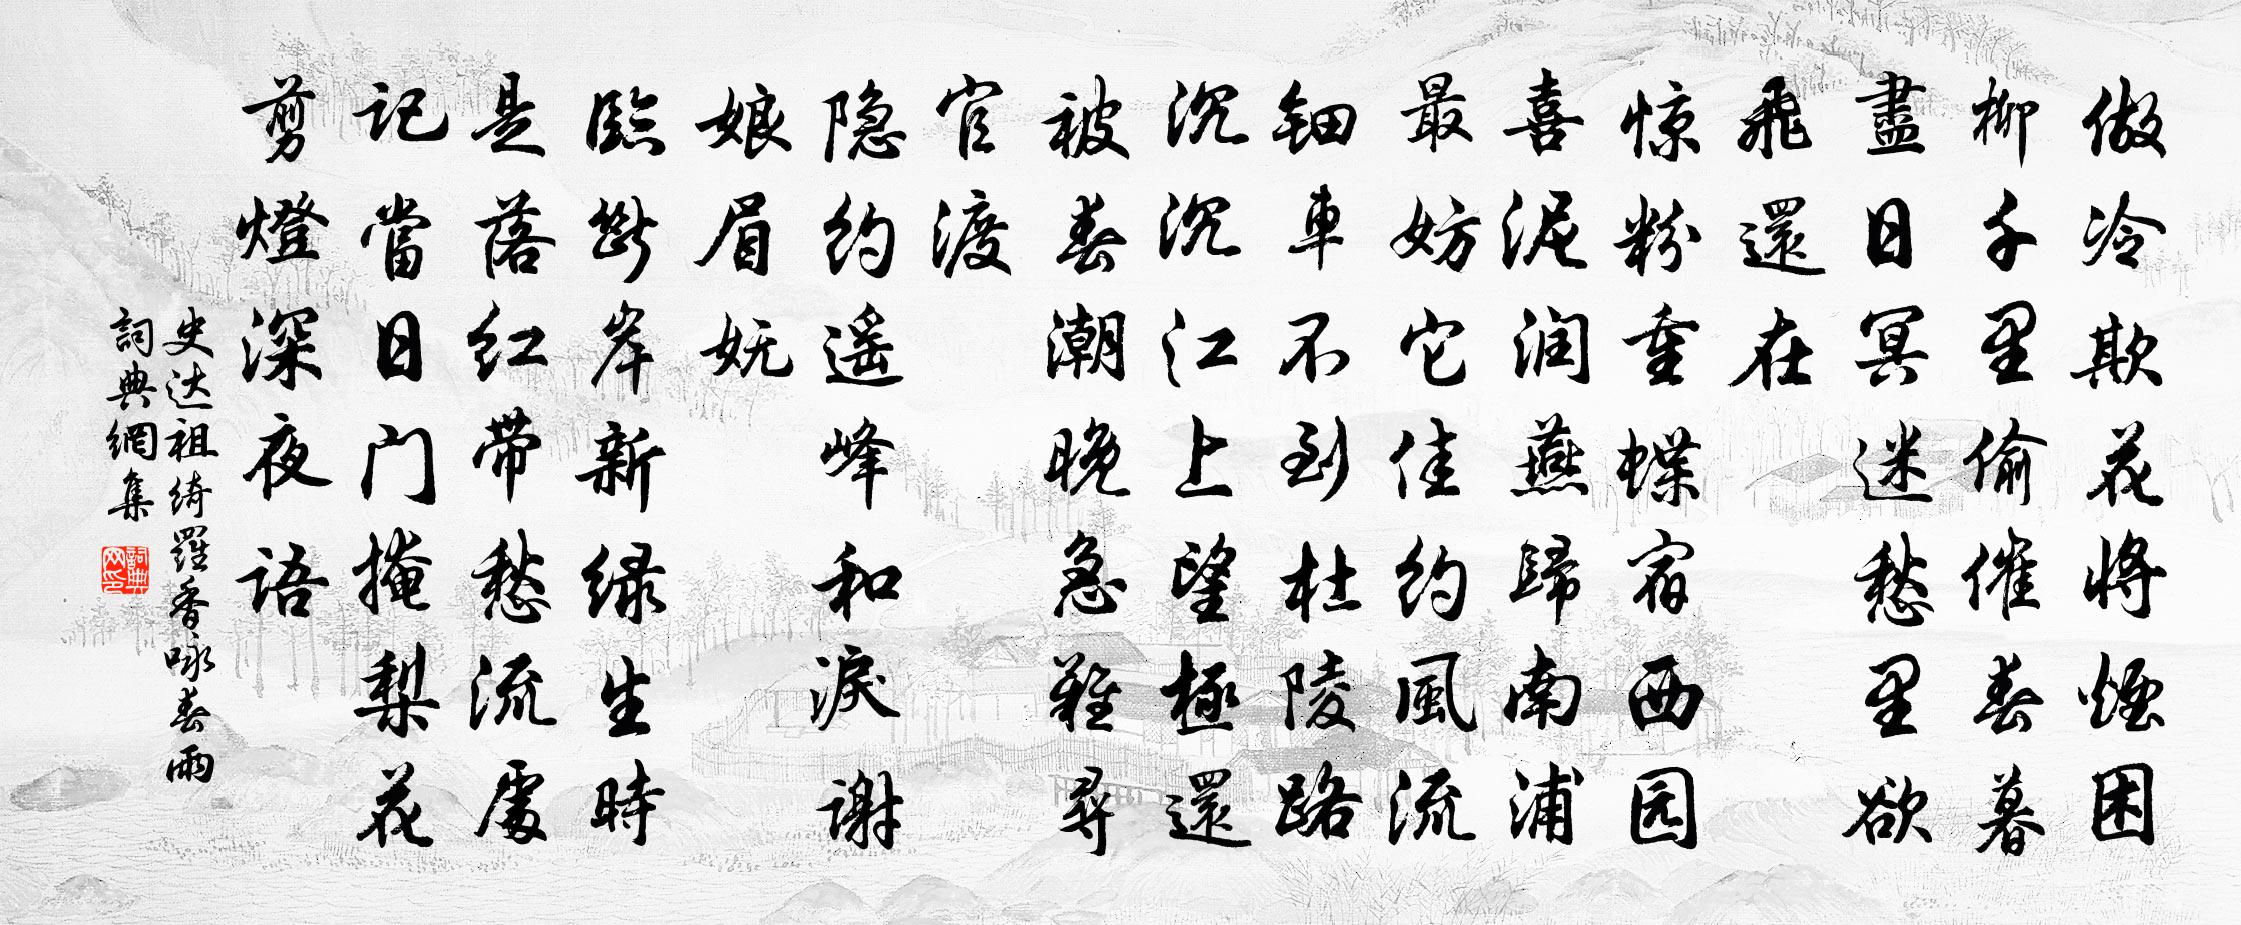 做冷欺花将煙困
柳千里偷催春暮
盡日冥迷愁里欲
飛還在
惊粉重蝶宿西园
喜泥润燕歸南浦
最妨它佳约風流
钿車不到杜陵路
沉沉江上望極還
被春潮晚急難尋
官渡
隐约遥峰和淚谢
娘眉妩
臨斷岸新绿生時
是落红带愁流處
记當日门掩梨花
剪燈深夜语
史达祖绮羅香咏春雨
詞典網集
詞典网印